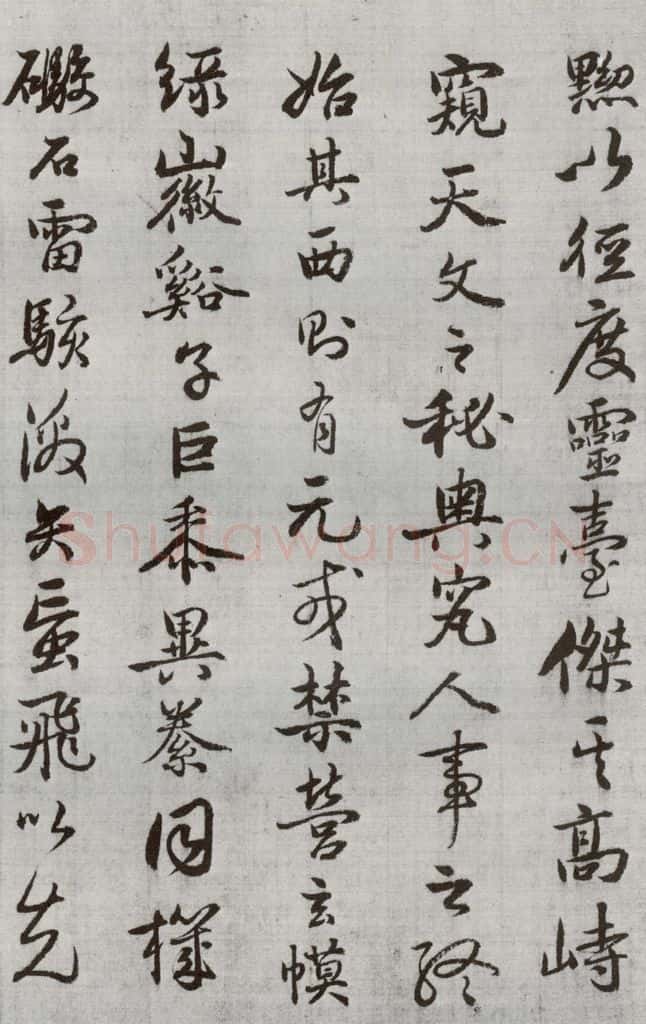 黝以徑度靈臺傑其高峙
窺天文之秘奧究人事之終
始其西則有元戎禁營玄幙
緑徽谿子巨黍異絭同機
礮石雷駭激矢䖟飛以先
Shufawang.CN